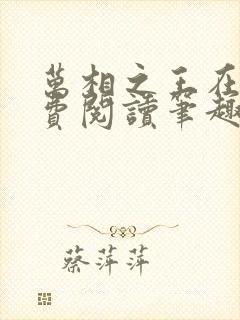 萬相之王在
費閱讀筆趣
蔡萍萍